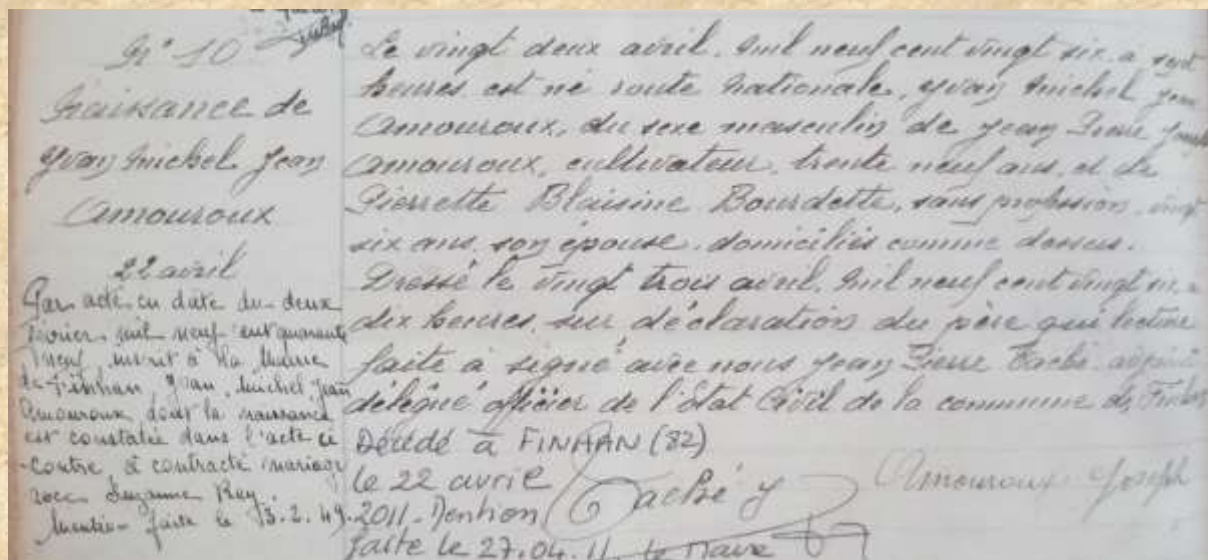 N° 10
Naissance de
Yvan Michel Jean
Amouroux
22 avril
Par acte en date du deux
février mil neuf cent quarante
neuf, inscrit à la Mairie
de Finhan, Yvan, Michel, Jean
Amouroux dont la naissance
est constatée dans l'acte ci
-contre, a contracté mariage
avec Suzanne Rey.
Mention faite le 13.2.49.
Le vingt deux avril, mil neuf cent vingt six, à sept
heures est né route nationale, Yvan Michel Jean
Amouroux, du sexe masculin de Jean Pierre Joseph
Amouroux, cultivateur, trente neuf ans, et de
Pierrette Blaisine Bourdette, sans profession, vingt
six ans, son épouse, domiciliés comme dessus.
Dressé le vingt trois avril, mil neuf cent vingt six, à
dix heures, sur déclaration du père qui lecture
faite à signé avec nous Jean Pierre Taché, adjoint
délégué officier de l'Etat Civil de la commune de Finhan
Décédé à FINHAN (82)
le 22 avril
2011. Mention
faite le 27.04.11 le Maire
Taché J
Amouroux Joseph